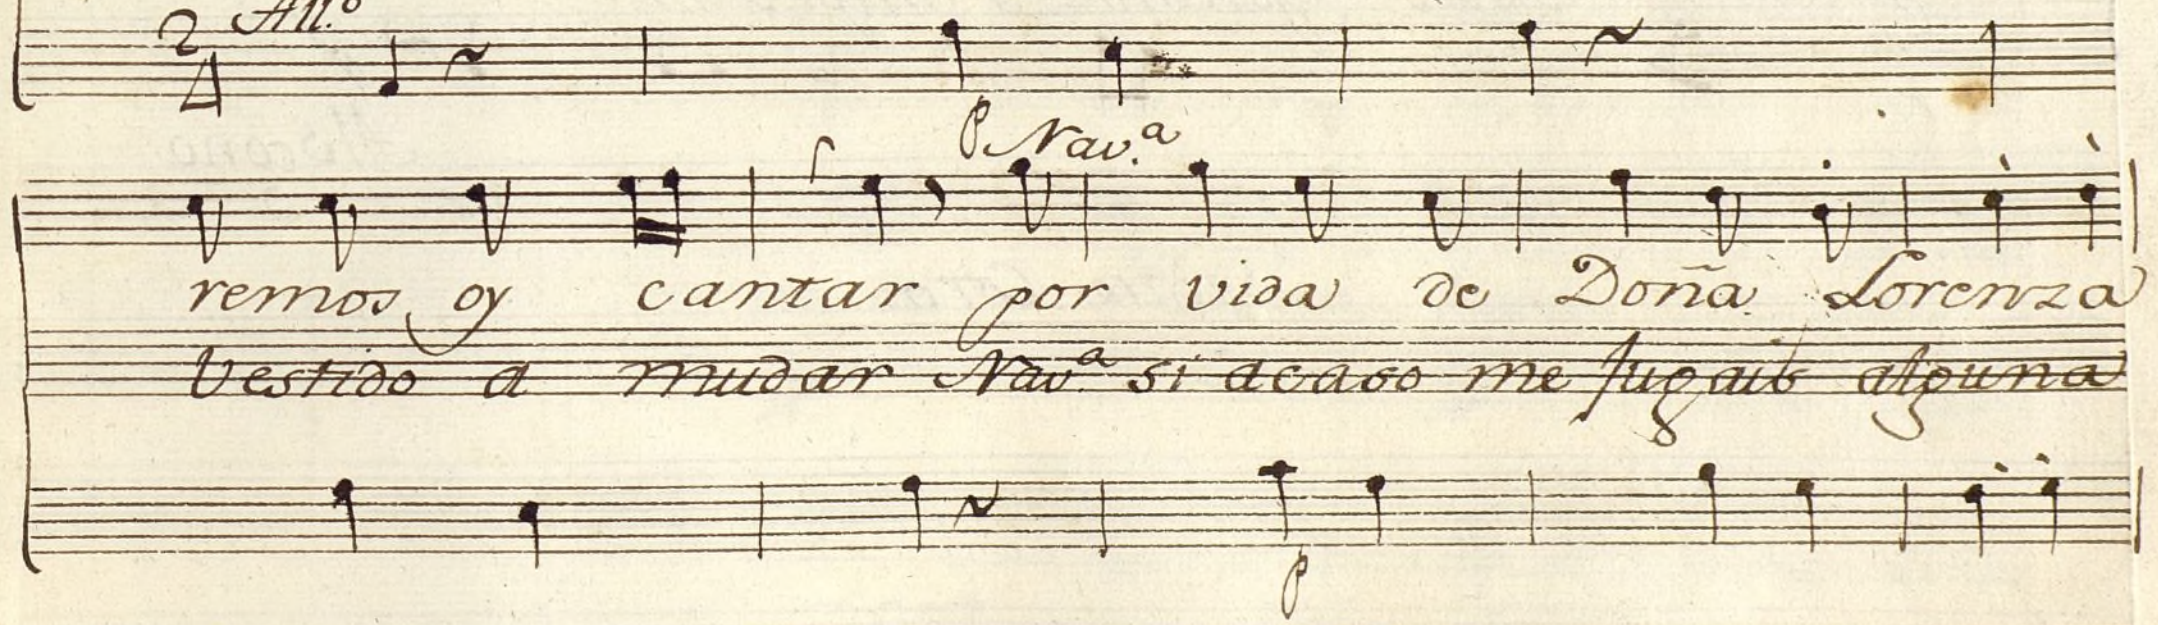 2/4 All.º
p Nav.ª
remos oy cantar por vida de Doña Lorenza
Vestido a mudar Nav.ª si acaso me jugais alguna
p